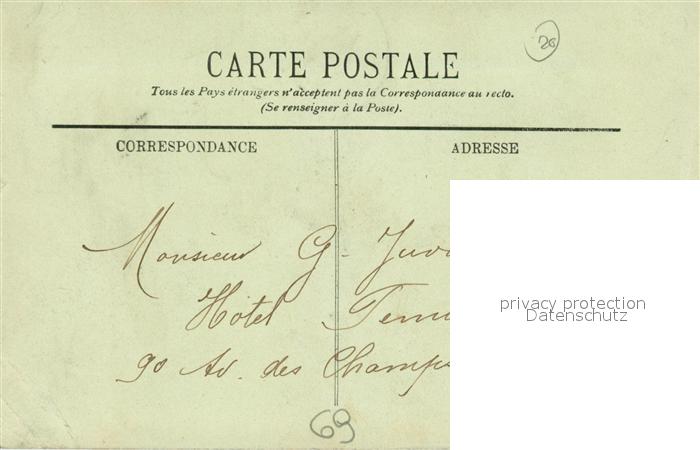 20
CARTE POSTALE
Tous les Pays étrangers n'acceptent pas la Correspondance au recto.
(Se renseigner à la Poste).
CORRESPONDANCE
ADRESSE
Monsieur G. Juv
privacy protection
Datenschutz
Hôtel
90 Av. des Champs
69